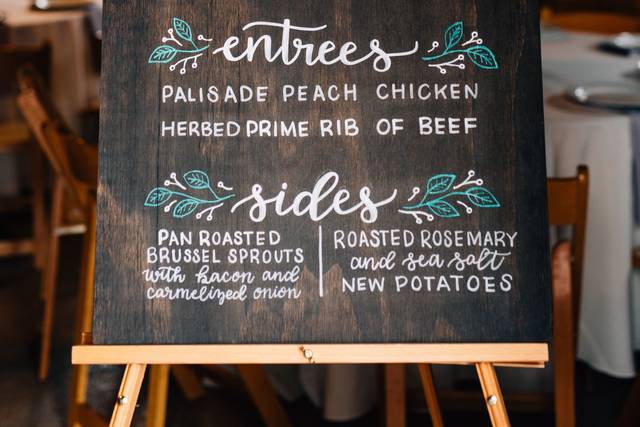 entrees
PALISADE PEACH CHICKEN
HERBED PRIME RIB OF BEEF
sides
PAN ROASTED
BRUSSEL SPROUTS
with bacon and
carmelized onion
ROASTED ROSEMARY
and sea salt
NEW POTATOES